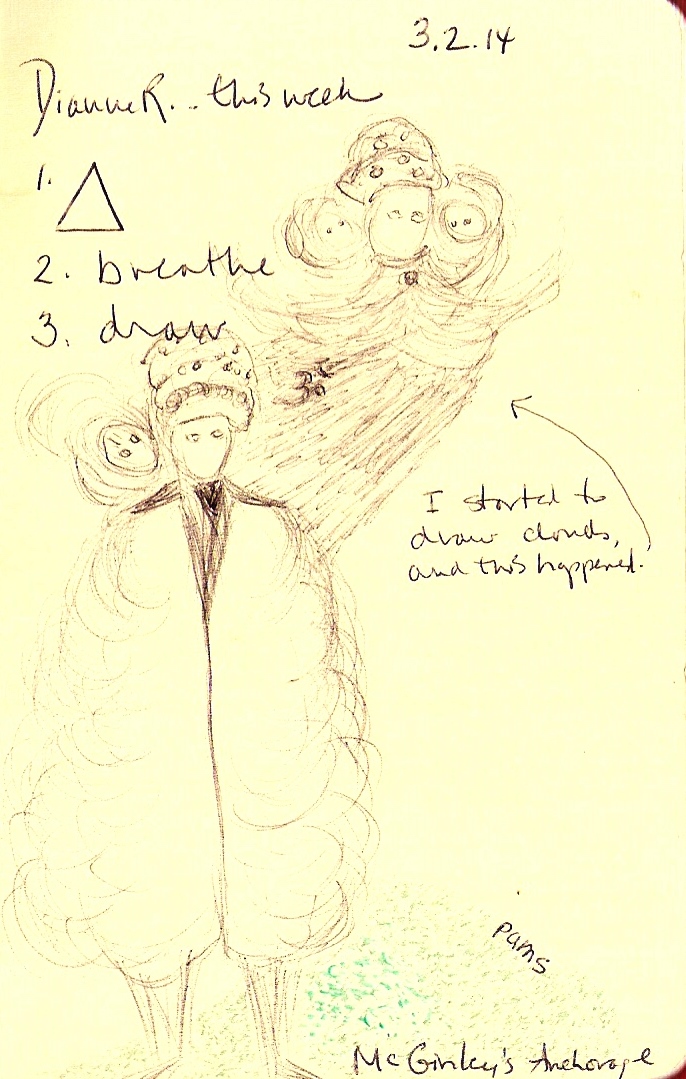 3.2.14
Dianne R... this week
1.
2. breathe
3. draw
I started to
draw clouds,
and this happened.
Pams
McGinley's Anchorage